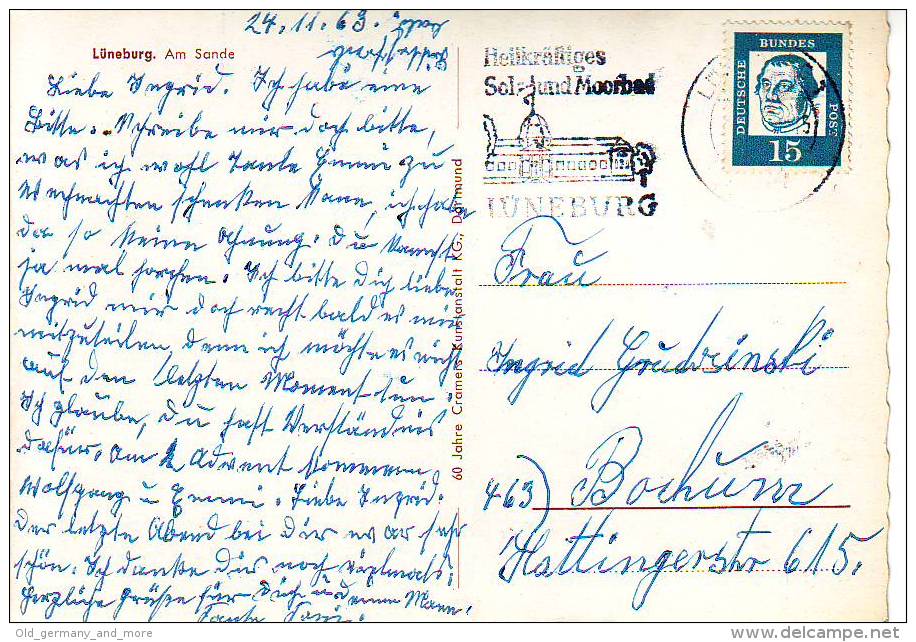 24.11.63.
Lüneburg. Am Sande
Liebe Ingrid. Ich habe eine
Bitte. Schreibe mir doch bitte,
was ich wohl Tante Emmi zu
Weihnachten schenken kann, ich habe
da so keine Ahnung. Du kannst
ja mal horchen. Ich bitte Dich liebe
Ingrid mir doch recht bald es mir
mitzuteilen denn ich möchte es nicht
auf den letzten Moment tun.
Ich glaube, du hast Verständnis
dafür. Am 2 Advent kommen
Wolfgang u Emmi. Liebe Ingrid.
Der letzte Abend bei Dir war sehr
schön. Ich danke dir noch vielmals.
Herzliche Grüße für Dich und Mann.
Tante
60 Jahre Cramers Kunstanstalt KG., Dortmund
Heilkräftiges
Sol- und Moorbad
LÜNEBURG
DEUTSCHE BUNDESPOST
15
Frau
Ingrid Grudzinski
463) Bochum
Hattingerstr 615.
Old_germany_and_more
delcampe.net